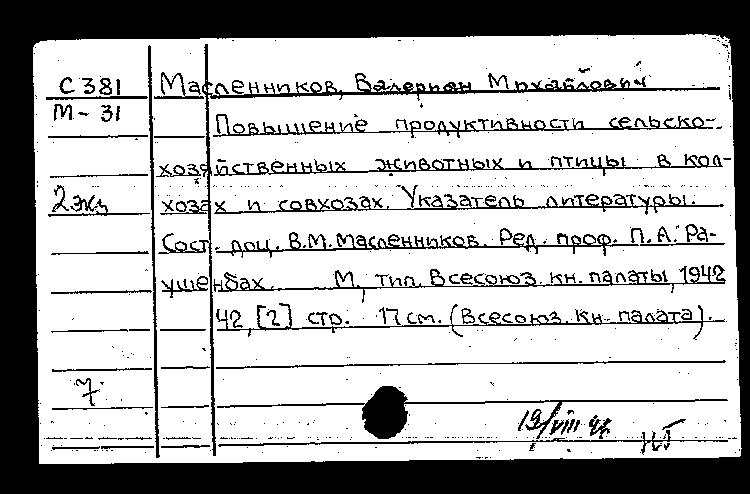 С 381 Масленников, Валериан Михайлович
М-31
Повышение продуктивности сельско-
хозяйственных животных и птицы в кол-
2 экз хозах и совхозах. Указатель литературы.
Сост. доц. В.М. Масленников. Ред. проф. П.А. Ра-
ушенбах. М., тип. Всесоюз. кн. палаты, 1942
42, [2] стр. 17 см. (Всесоюз. кн. палата).
7
19/VIII